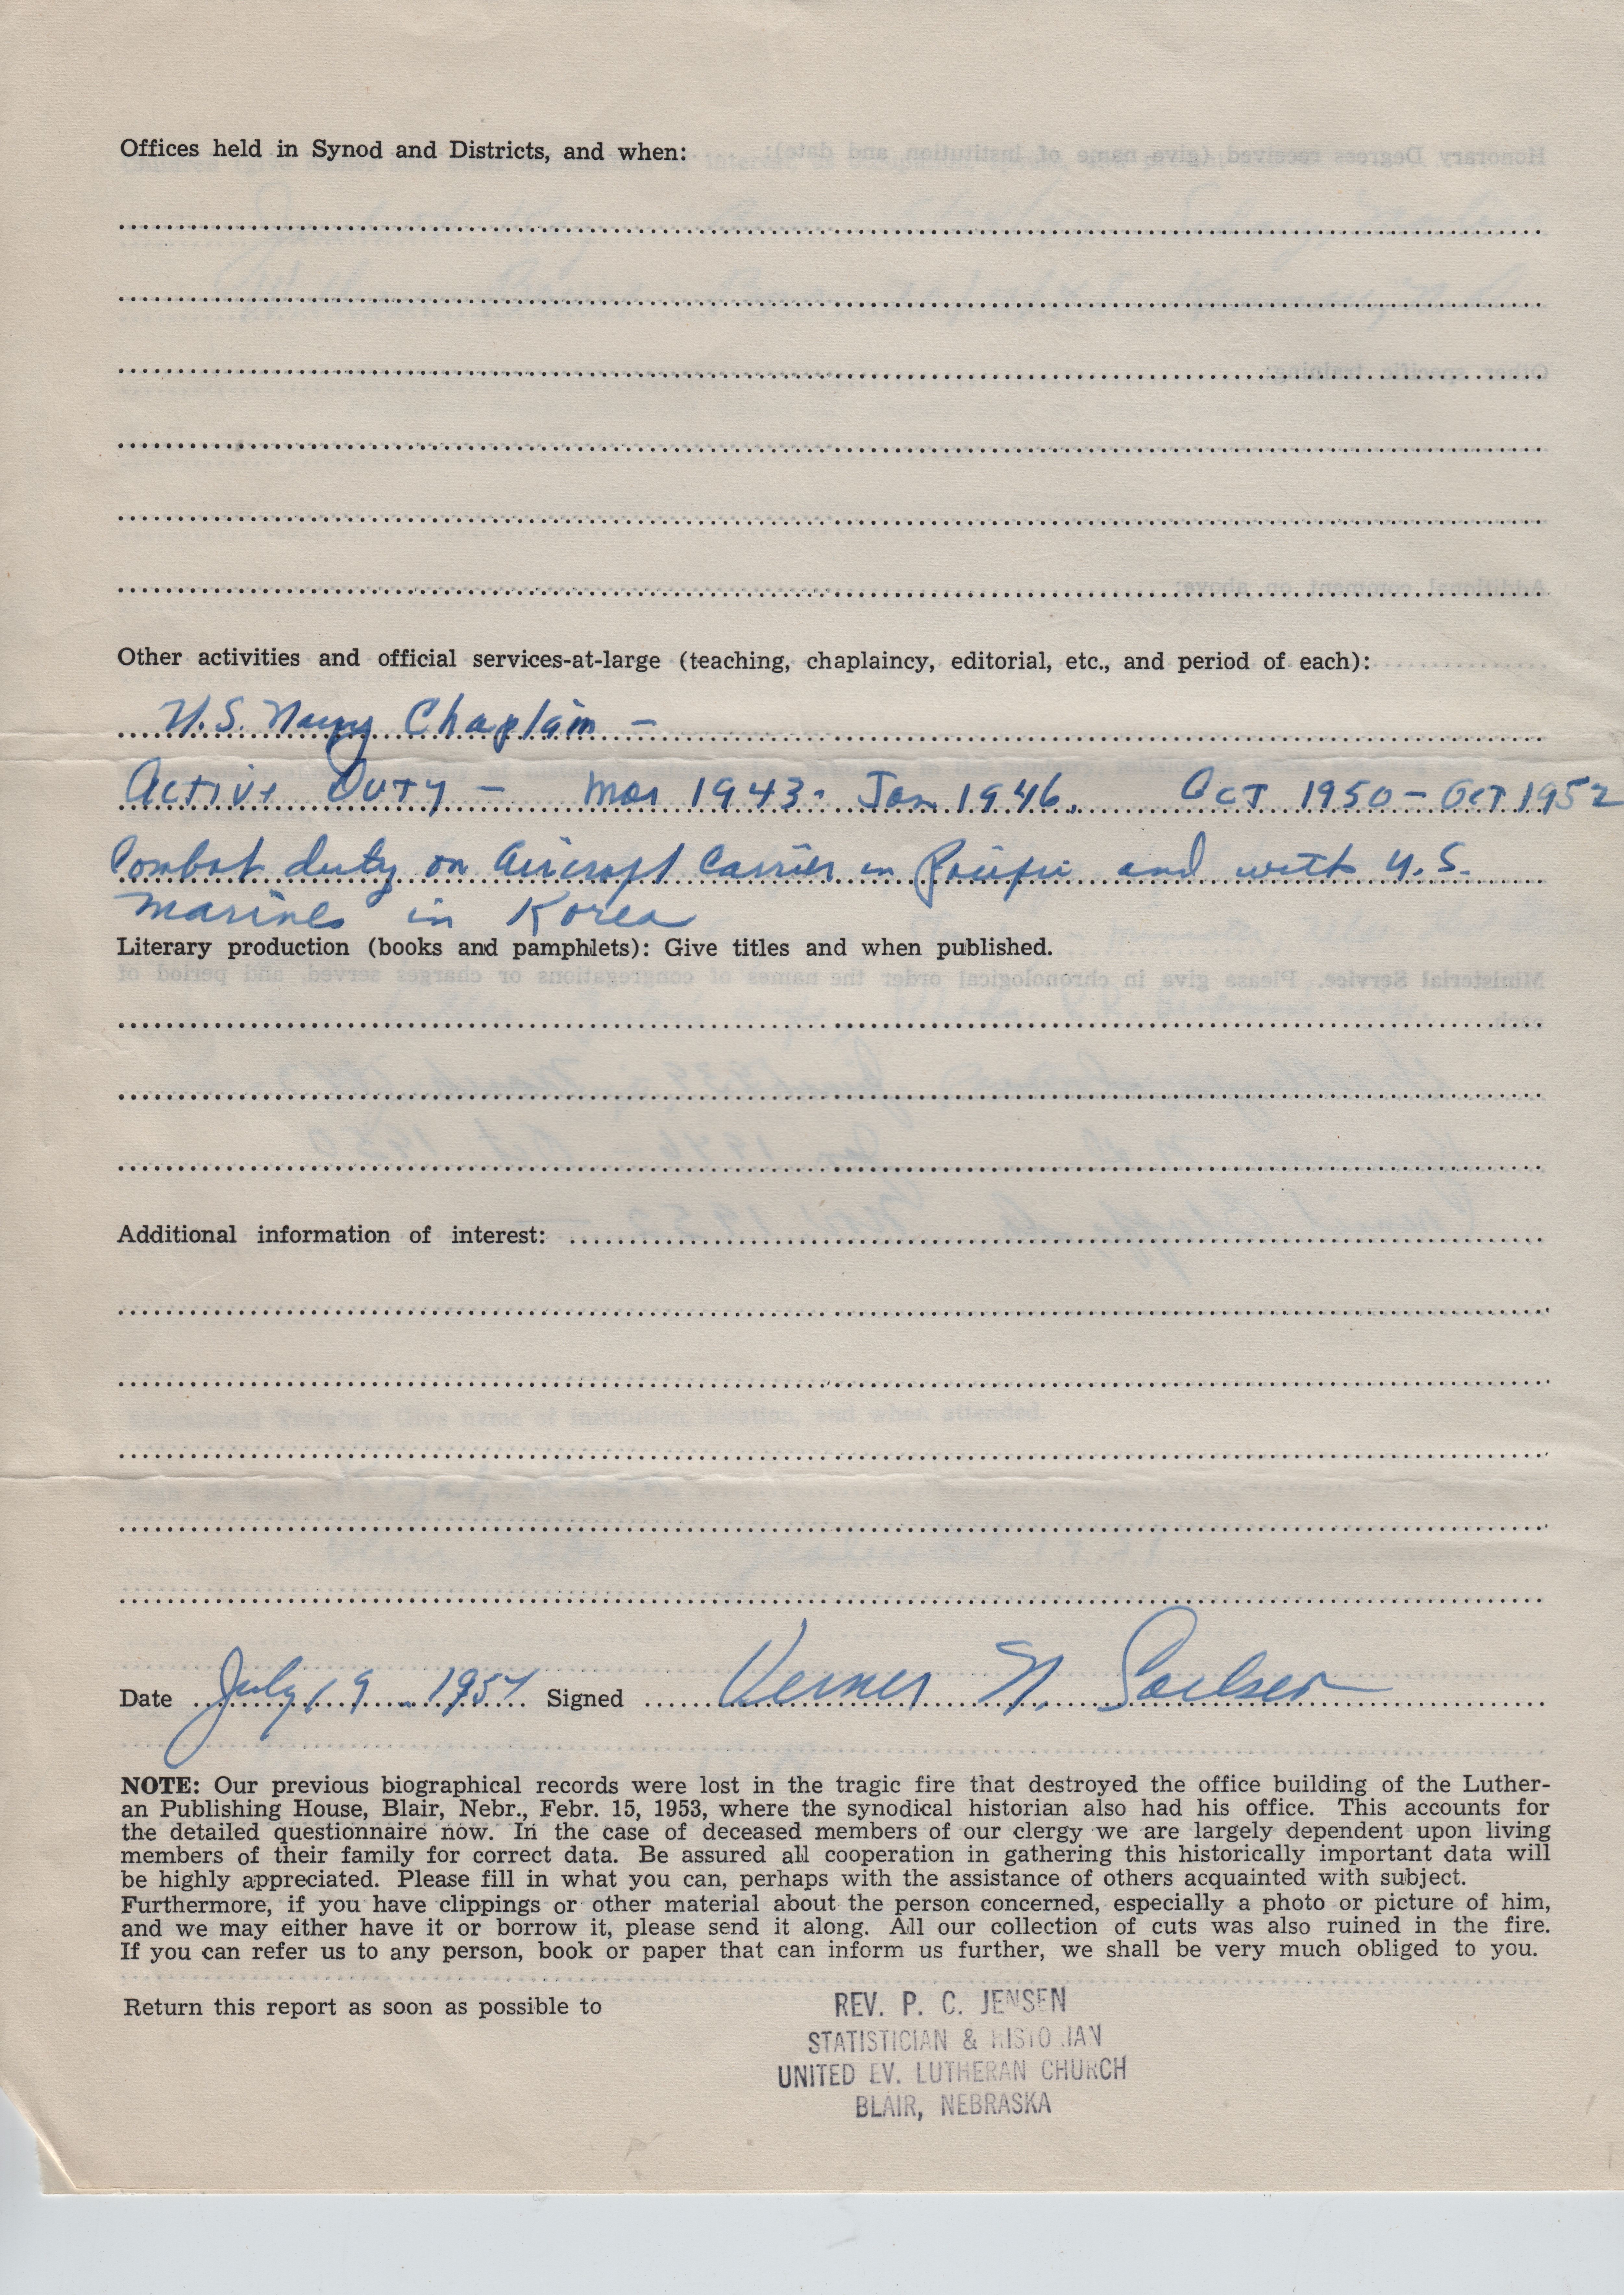 Offices held in Synod and Districts, and when:
Other activities and official services-at-large (teaching, chaplaincy, editorial, etc., and period of each):
U.S. Navy Chaplain –
Active Duty – Mar 1943 - Jan 1946. Oct 1950 – Oct 1952
Combat duty on Aircraft Carrier in Pacific and with U.S.
Marines in Korea
Literary production (books and pamphlets): Give titles and when published.
Additional information of interest:
Date July 19 - 1954 Signed Verner N.
NOTE: Our previous biographical records were lost in the tragic fire that destroyed the office building of the Luther-
an Publishing House, Blair, Nebr., Febr. 15, 1953, where the synodical historian also had his office. This accounts for
the detailed questionnaire now. In the case of deceased members of our clergy we are largely dependent upon living
members of their family for correct data. Be assured all cooperation in gathering this historically important data will
be highly appreciated. Please fill in what you can, perhaps with the assistance of others acquainted with subject.
Furthermore, if you have clippings or other material about the person concerned, especially a photo or picture of him,
and we may either have it or borrow it, please send it along. All our collection of cuts was also ruined in the fire.
If you can refer us to any person, book or paper that can inform us further, we shall be very much obliged to you.
Return this report as soon as possible to
REV. P. C. JENSEN
STATISTICIAN & HISTORIAN
UNITED EV. LUTHERAN CHURCH
BLAIR, NEBRASKA